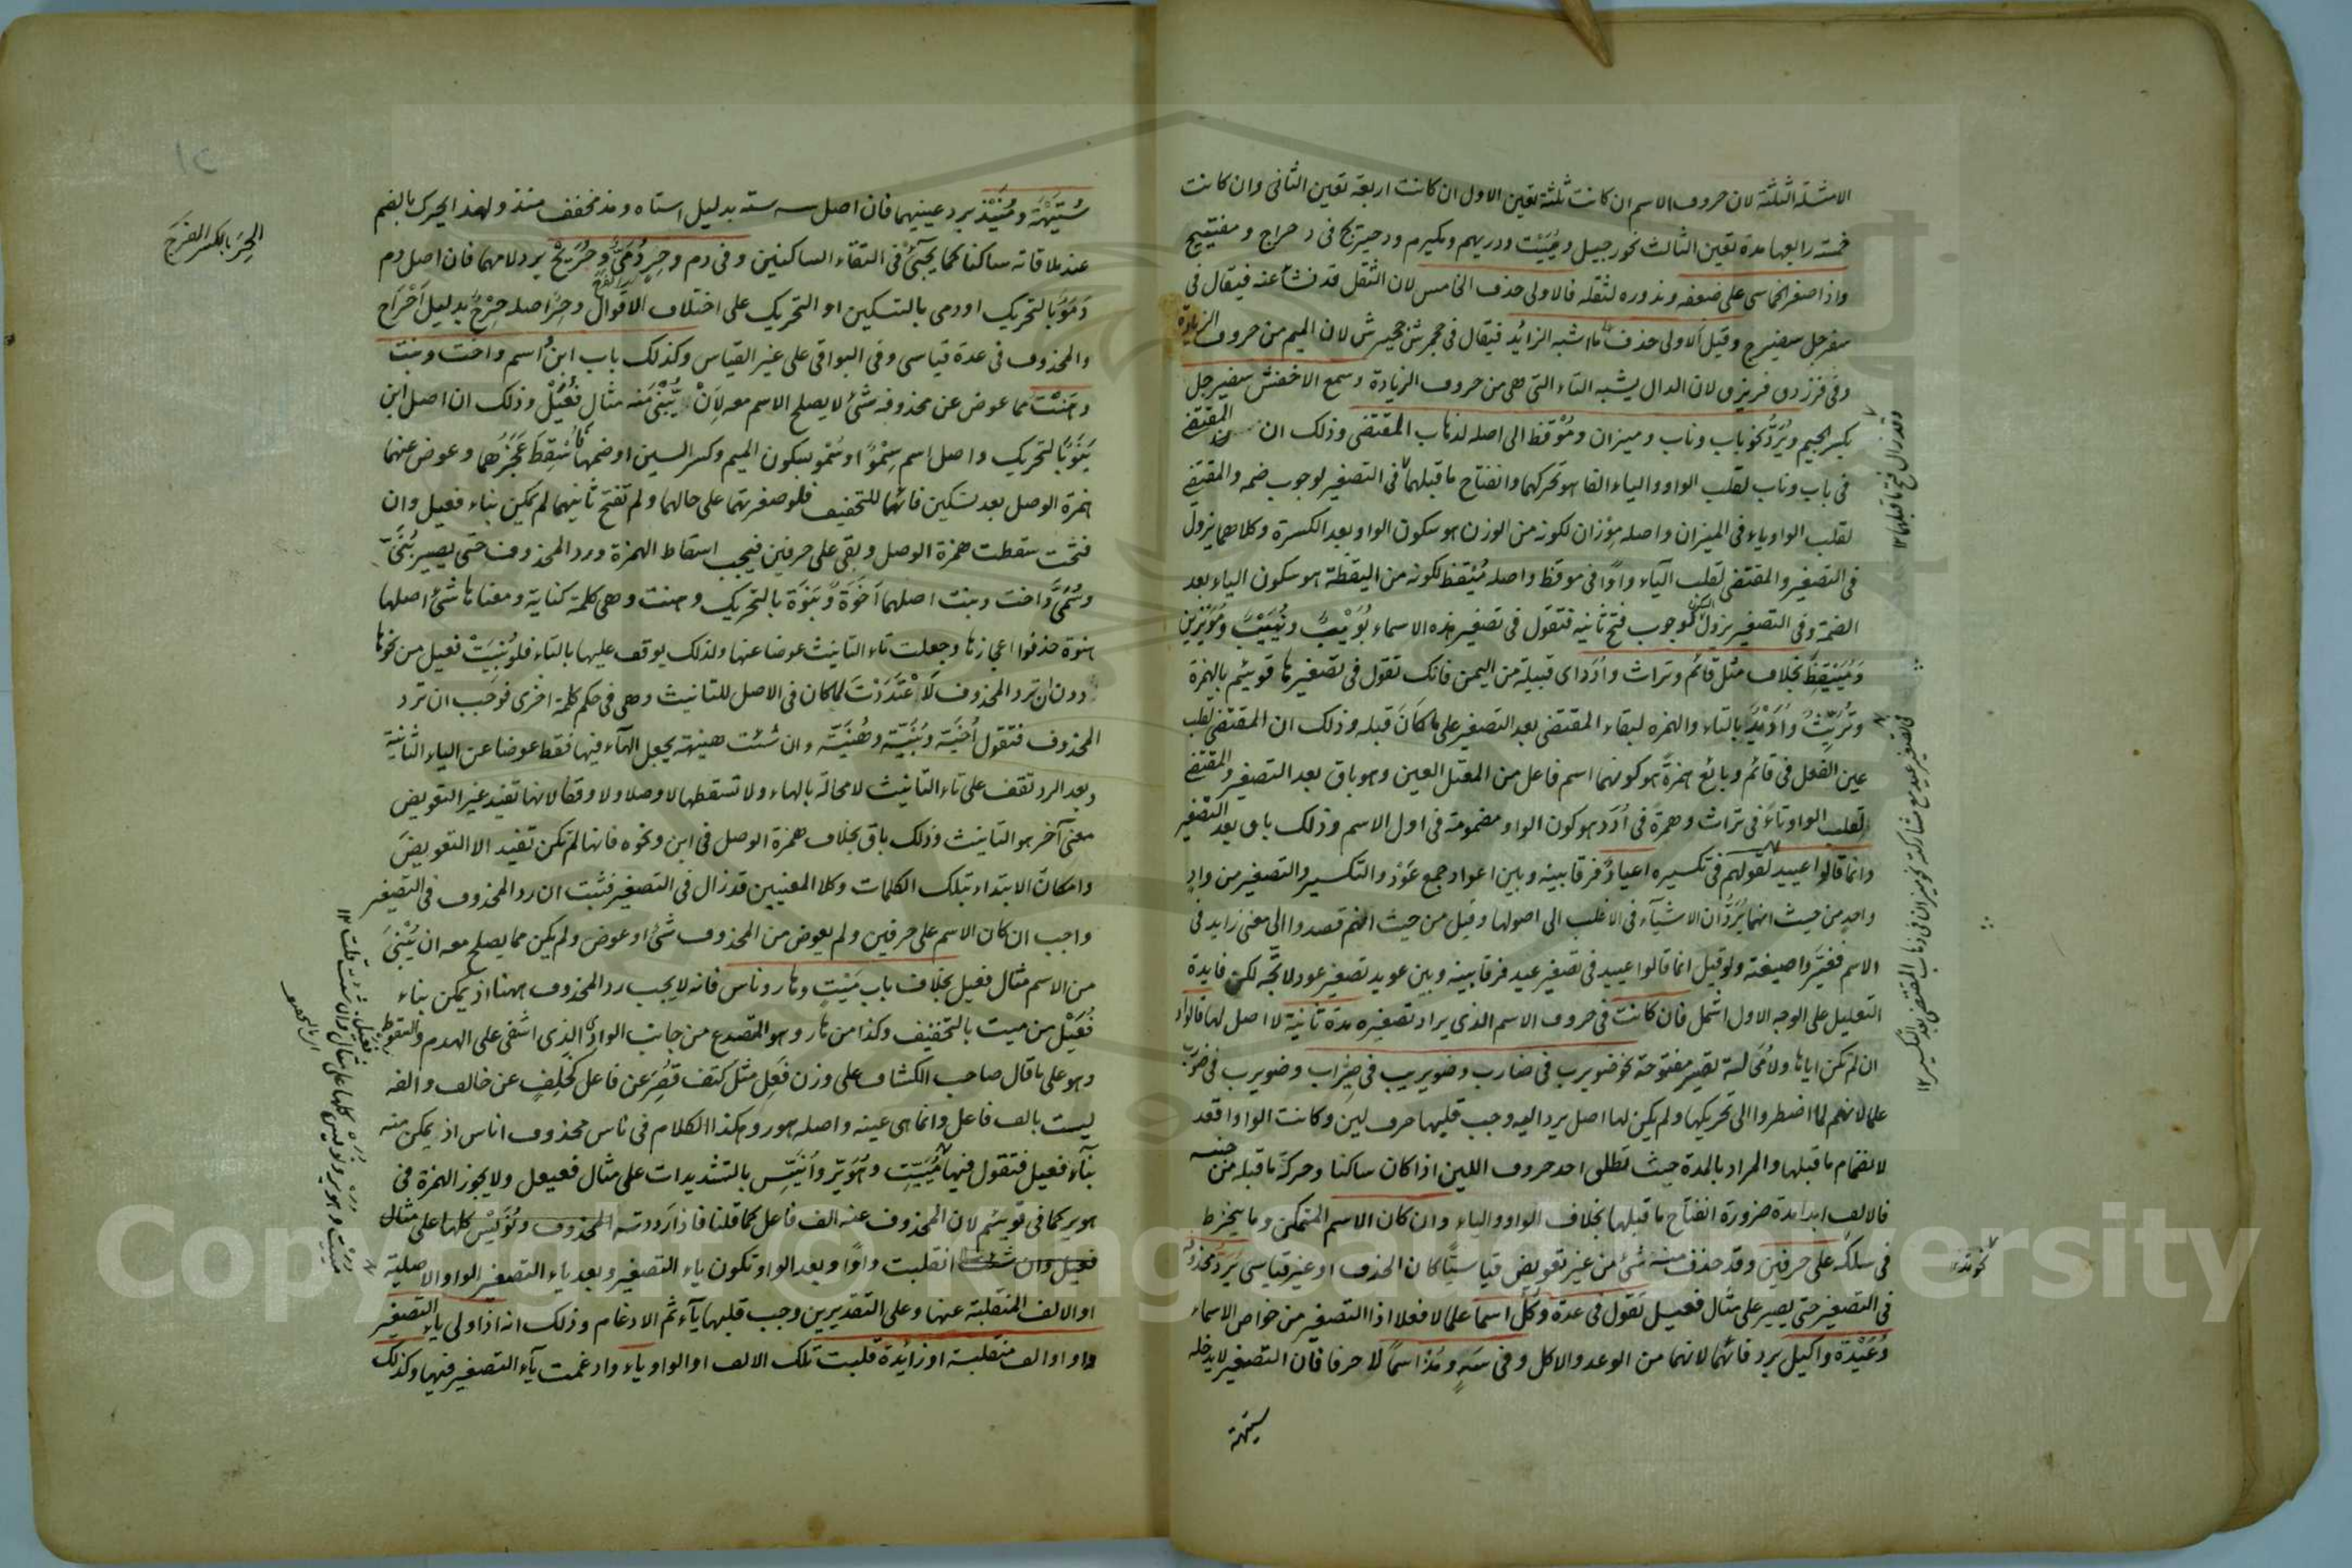 الامثلة الثلثة لان حروف الاسم ان كانت ثلثة تعين الاول ان كانت اربعة تعين الثانى وان كانت
خمسة رابعها مدة تعين الثالث نحو رجيل ومُيَيْت ودريهم ومكيرم ودحيريج فى دحراج ومفيتيح
واذا صغر الخماسى على ضعفه وندوره لثقله فالاولى حذف الخامس لان الثقل قد نشأ عنه فيقال فى
سفرجل سفيرج وقيل الاولى حذف ما اشبه الزائد فيقال فى جحمرش جحيرش لان الميم من حروف الزيادة
وفى فرزدق فريزق لان الدال يشبه التاء التى هى من حروف الزيادة وسمع الاخفش سفيرجل
بكسر الجيم ويُرَدُّ نحو باب وناب وميزان ومُوْقظ الى اصله لذهاب المقتضى وذلك ان المقتضى
فى باب وناب لقلب الواو والياء الفا هو تحركهما وانفتاح ما قبلهما فى التصغير لوجوب ضمه والمقتضى
لقلب الواو ياء فى الميزان واصله مِوْزان لكونه من الوزن هو سكون الواو بعد الكسرة وكلاهما يزول
فى التصغير والمقتضى لقلب الياء واوًا فى موقظ واصله مُيْقظ لكونه من اليقظة هو سكون الياء بعد
الضمة وفى التصغير يزول السكون لوجوب فتح ثانيه فتقول فى تصغير هذه الاسماء بُوَيْبٌ ونُيَيْبٌ ومُوَيْزين
ومُيَيْقِظٌ بخلاف مثل قائم وتراث واُدَد اى قبيلة من اليمن فانك تقول فى تصغيرها قويئم بالهمزة
وتُرَيِّثٌ واُدَيْدٌ بالتاء والهمزه لبقاء المقتضى بعد التصغير على ما كان قبله وذلك ان المقتضى لقلب
عين الفعل فى قائم وبائع همزةً هو كونهما اسم فاعل من المعتل العين وهو باق بعد التصغير والمقتضى
لقلب الواو تاءً فى تراث وهمزة فى اُدَد هو كون الواو مضمومة فى اول الاسم وذلك باق بعد التصغير
وانما قالوا عييد لقولهم فى تكسيره اعياد فرقا بينه وبين اعواد جمع عَوْد والتكسير والتصغير من واد
واحد من حيث انهما يُرَدّان الاشياء فى الاغلب الى اصولها وقيل من حيث انهم قصدوا الى معنى زايد فى
الاسم فغيّروا صيغته ولو قيل انما قالوا عييد فى تصغير عيد فرقا بينه وبين عويد تصغير عود لاتجه لكن فايدة
التعليل على الوجه الاول اشمل فان كانت فى حروف الاسم الذى يراد تصغيره مدة ثانية لا اصل لها فالواو
ان لم تكن اياها ولا مَحَالة تصير مفتوحة نحو ضويرب فى ضارب وضويريب فى ضِيراب وضويرب فى ضورب
علما لانهم لما اضطروا الى تحريكها ولم يكن لها اصل يرد اليه وجب قلبها حرف لين وكانت الواو اقعد
لانضمام ما قبلها والمراد بالمدة حيث تطلق احد حروف اللين اذا كان ساكنا وحركة ما قبله من جنسه
فالالف ابدا مدة ضرورة انفتاح ما قبلها بخلاف الواو والياء وان كان الاسم المتمكن وما ينخرط
فى سلكه على حرفين وقد حذف منه شئ من غير تعويض قياسيًّا كان الحذف او غير قياسى يُرَدّ محذوفه
فى التصغير حتى يصير على مثال فعيل تقول فى عدة وكُلْ اسما علما لا فعلا اذ التصغير من خواص الاسماء
وُعَيْدة واكيل برد فائهما لانهما من الوعد والاكل وفى سَهٍ ومُذْ اسمًا لا حرفا فان التصغير لا يدخله
ستيهة
وقد زال فتح ما قبلهما ١٢
نحو مذ
سُتَيْهَة ومُنَيْذ برد عينيهما فان اصل سه سته بدليل استاه ومذ مخفف منذ ولهذا يحرك بالضم
عند ملاقاته ساكنا كما يجئ فى التقاء الساكنين وفى دم وحِرٍ دُمَىٌّ وحُرَيْحٌ برد لامهما فان اصل دم
دَمَوٌ بالتحريك او دمى بالتسكين او التحريك على اختلاف الاقوال وحِرٌ اصله حِرْحٌ بدليل اَحْرَاح
والمحذوف فى عدة قياسى وفى البواقى على غير القياس وكذلك باب ابن واسم واخت وبنت
وهَنْت مما عوض عن محذوفه شئ لا يصلح الاسم معه لاَنْ يُبْنٰى منه مثال فُعَيْل وذلك ان اصل ابن
بَنَوٌ بالتحريك واصل اسم سِمْوٌ او سُمْو بسكون الميم وكسر السين او ضمها اُسْقِطَ عَجُزُهما وعوض عنهما
همزة الوصل بعد تسكين فائهما للتخفيف فلو صغرتهما على حالهما ولم تفتح ثانيهما لم يمكن بناء فعيل وان
فتحت سقطت همزة الوصل وبقى على حرفين فيجب اسقاط الهمزة ورد المحذوف حتى يصير بُنَىّ
وسُمَىّ واخت وبنت اصلهما اَخَوَة وبَنَوَة بالتحريك وهنت وهى كلمة كناية ومعناها شئ اصلها
هنوة حذفوا اعجازها وجعلت تاء التانيث عوضا عنها ولذلك يوقف عليها بالتاء فلو بُنِيَتْ فعيل من نحوها
دون ان ترد المحذوف لَاُعْتَدَّتْ لما كان فى الاصل للتانيث وهى فى حكم كلمة اخرى فوجب ان ترد
المحذوف فتقول اُخَيّة وبُنَيّة وهُنَيّة وان شئت هنيهة بجعل الهاء فيها فقط عوضا عن الياء الثانية
وبعد الرد تقف على تاء التانيث لا محالة بالهاء ولا تسقطها لا وصلا ولا وقفا لانها تفيد غير التعويض
معنى آخر هو التانيث وذلك باق بخلاف همزة الوصل فى ابن ونحوه فانها لم تكن تفيد الا التعويض
وامكان الابتداء بتلك الكلمات وكلا المعنيين قد زال فى التصغير فثبت ان رد المحذوف فى التصغير
واجب ان كان الاسم على حرفين ولم يعوض من المحذوف شئ او عوض ولم يكن مما يصلح معه ان يُبْنٰى
من الاسم مثال فعيل بخلاف باب مَيْتٍ وهار وناس فانه لا يجب رد المحذوف ههنا اذ يمكن بناء
فُعَيْل من ميت بالتخفيف وكذا من هار وهو المتصدع من جانب الوادى الذى اشفى على الهدم والسقوط
وهو على ما قال صاحب الكشاف على وزن فَعِل مثل كتف قُصِرَ عن فاعل كخَلِفٍ عن خالف والفه
ليست بالف فاعل وانما هى عينه واصله هور وهكذا الكلام فى ناس محذوف اناس اذ يمكن منه
بناء فعيل فتقول فيها مُيَيِّت وهُوَيّر واُنَيّس بالتشديدات على مثال فعيعل ولا يجوز الهمزة فى
هوير كما فى قويئم لان المحذوف عنه الف فاعل كما قلنا فاذا رددته المحذوف ونُوَيْس كلها على مثال
فعيل وان شئت انقلبت واوًا وبعد الواو تكون ياء التصغير وبعد ياء التصغير الواو الاصلية
او الالف المنقلبة عنها وعلى التقديرين وجب قلبها ياء ثم الادغام وذلك انه اذا ولى ياء التصغير
واو او الف منقلبة او زائدة قلبت تلك الالف او الواو ياء وادغمت ياء التصغير فيها وكذلك
الحِرَ بالكسر الفرَج
١٢
Copyright © King Saud University